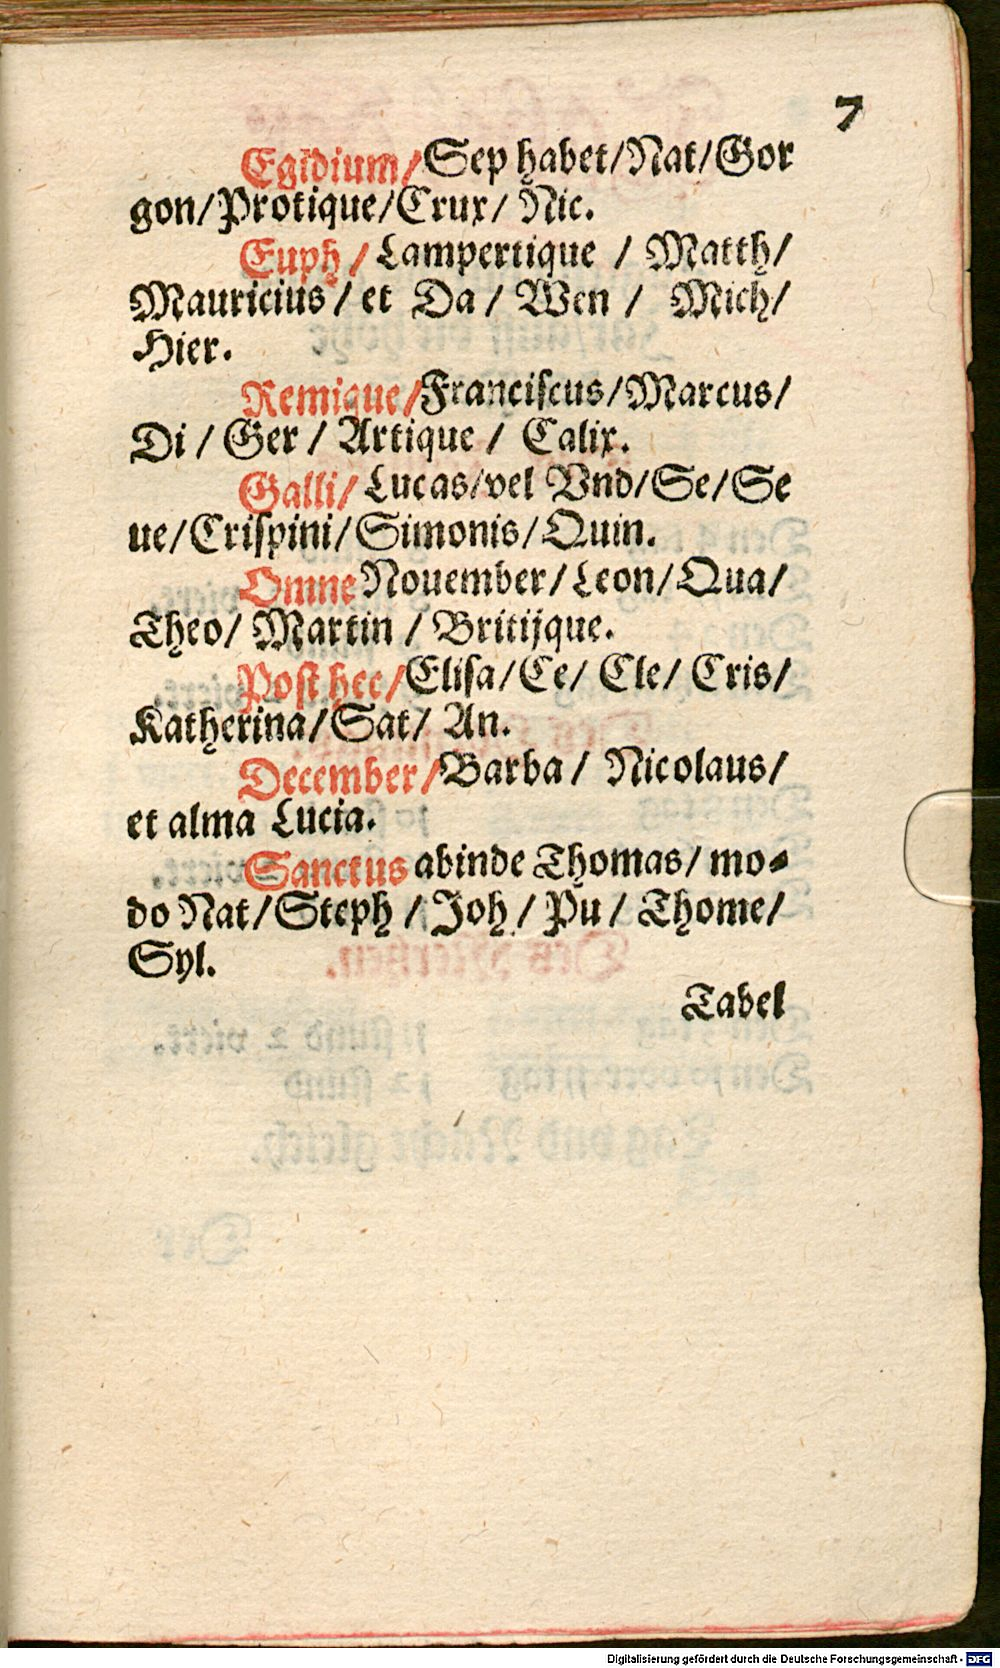 7
Egidium/ Sep habet/ Nat/ Gor
gon/ Protique/ Crux/ Nic.
Euph/ Lampertique / Matth/
Mauricius/ et Da/ Wen / Mich/
Hier.
Remique/ Franciscus/ Marcus/
Di/ Ger/ Artique / Calix.
Galli/ Lucas/ vel Vnd/ Se/ Se
ue/ Crispini/ Simonis/ Quin.
Omne Nouember/ Leon/ Qua/
Theo/ Martin / Britijque.
Post hec/ Elisa/ Ce/ Cle/ Cris/
Katherina/ Sat/ An.
December/ Barba/ Nicolaus/
et alma Lucia.
Sanctus abinde Thomas/ mo-
do Nat/ Steph / Joh / Pu / Thome/
Syl.
Tabel
Digitalisierung gefördert durch die Deutsche Forschungsgemeinschaft - DFG